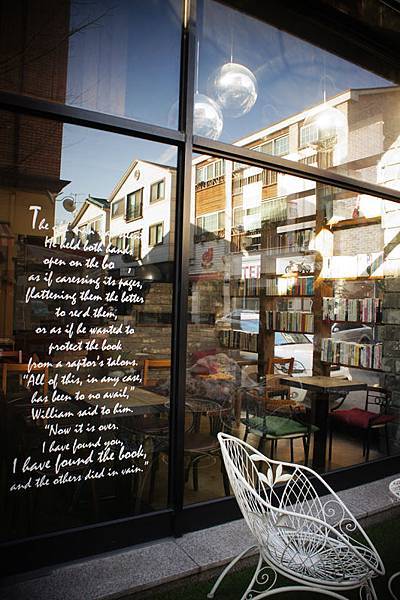 The
He held both hands
open on the bo ,
as if caressing its pages,
flattening them the better
to read them,
or as if he wanted to
protect the book
from a raptor's talons.
"All of this, in any case,
has been to no avail,
William said to him.
"Now it is over.
I have found you,
I have found the book,
and the others died in vain."